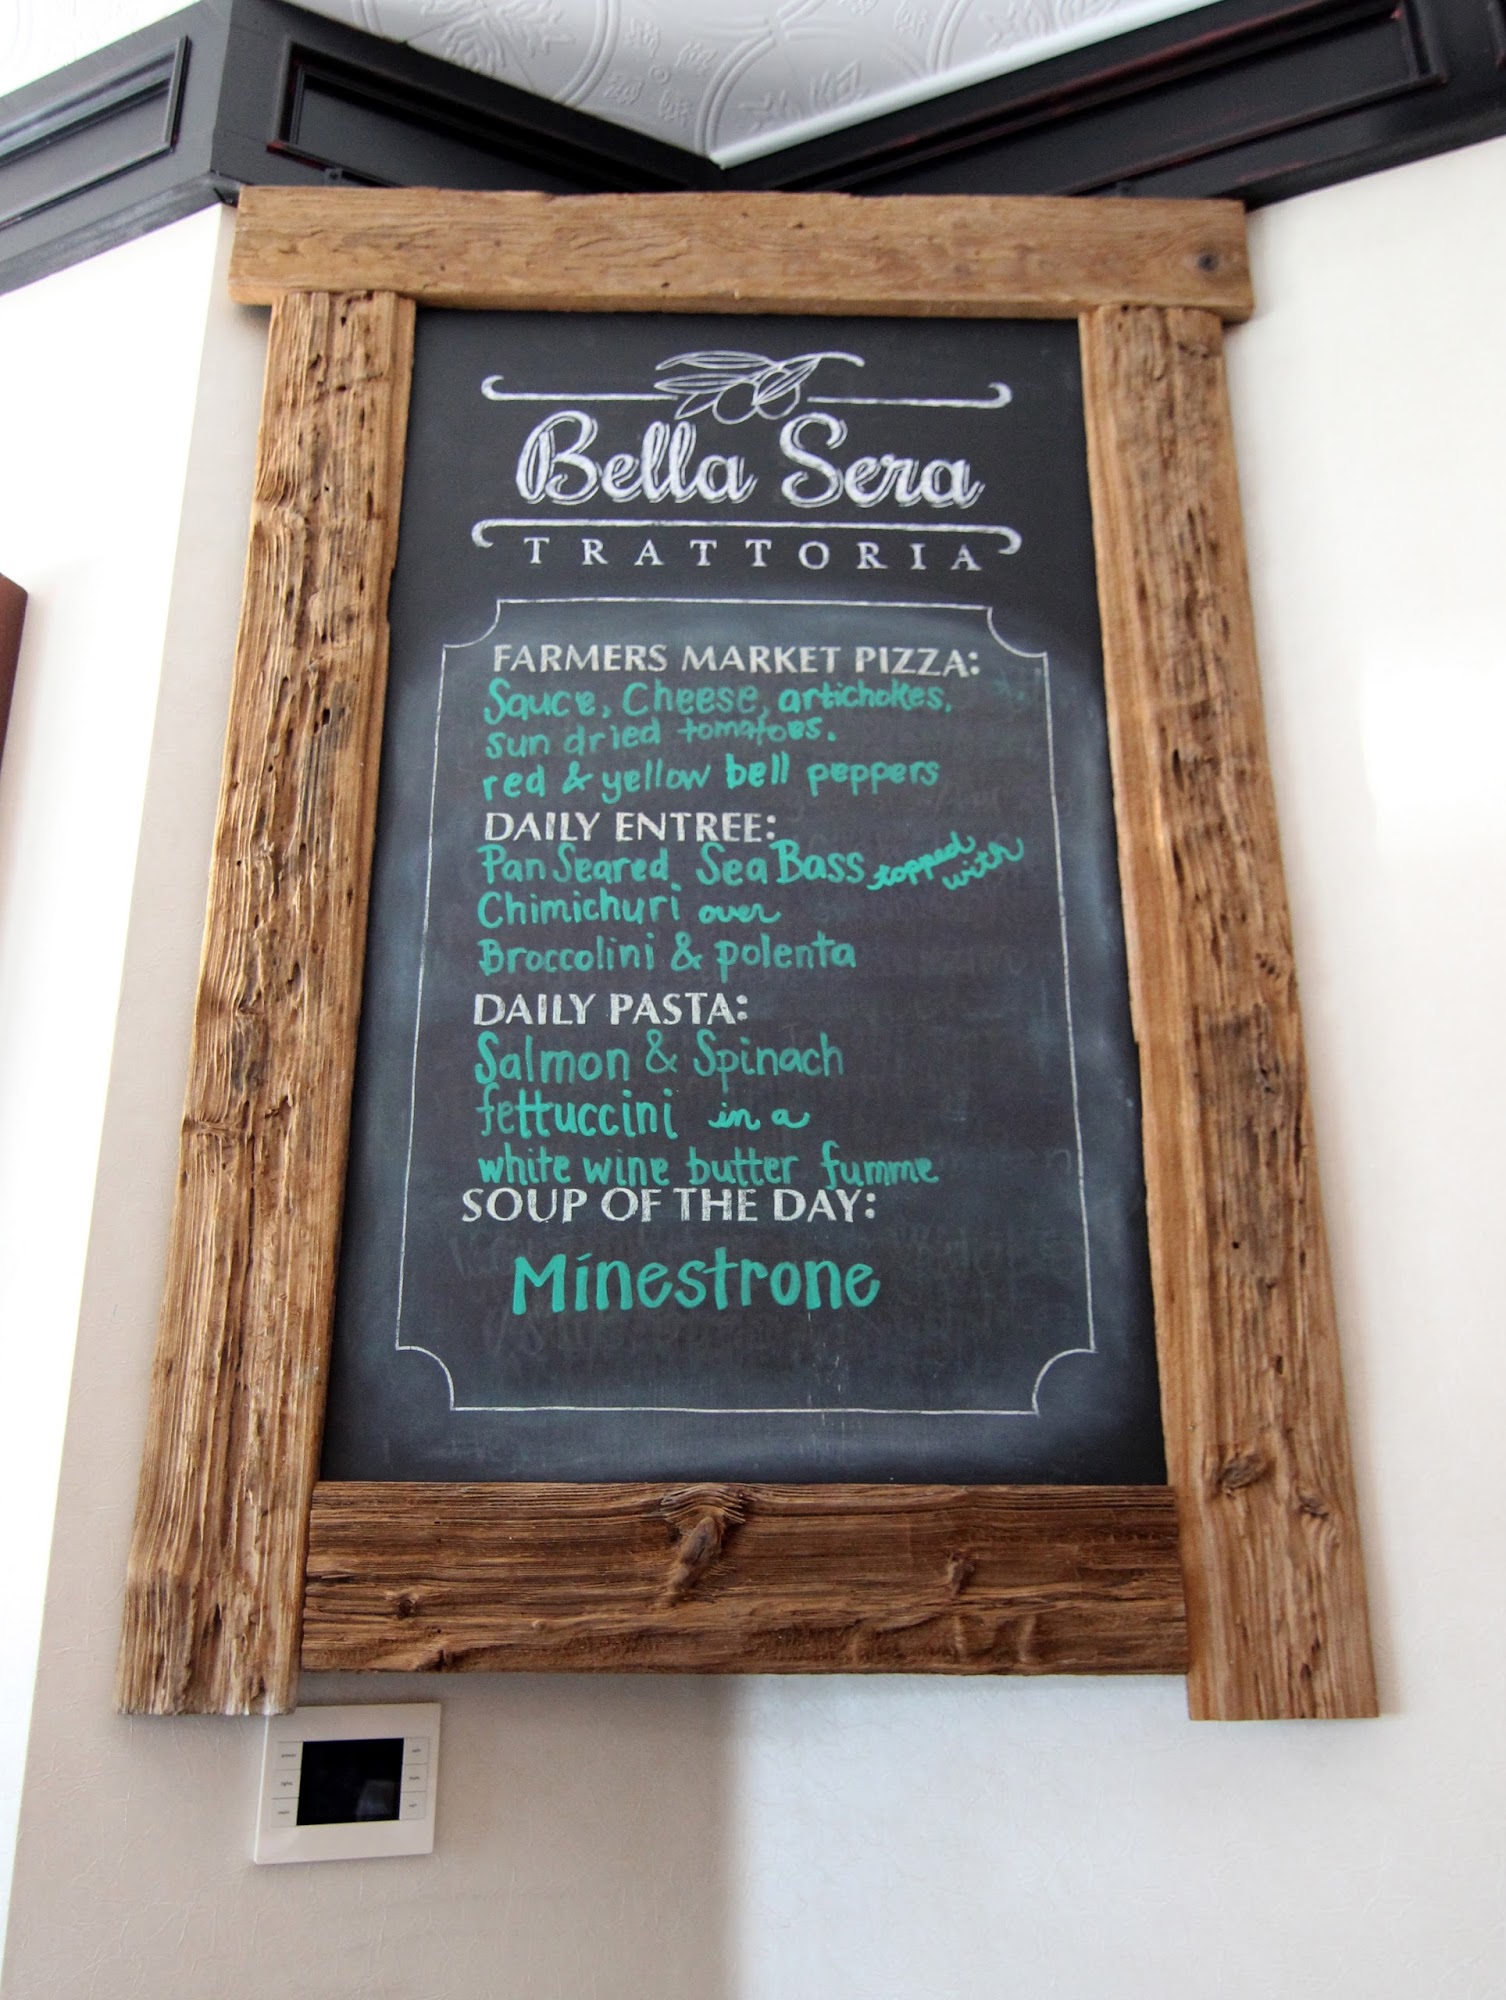 Bella Sera
TRATTORIA
FARMERS MARKET PIZZA:
Sauce, Cheese, artichokes,
sun dried tomatoes.
red & yellow bell peppers
DAILY ENTREE:
Pan Seared Sea Bass topped with
Chimichuri over
Broccolini & polenta
DAILY PASTA:
Salmon & Spinach
fettuccini in a
white wine butter fumme
SOUP OF THE DAY:
Minestrone